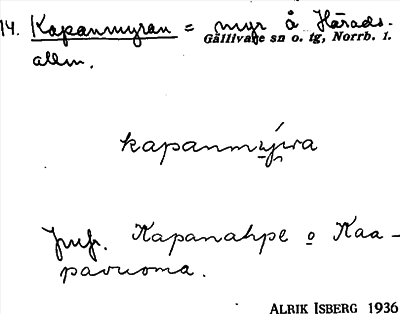 14. Kapanmyran = myr å Härads-
Gällivare sn o. tg, Norrb. l.
allm.
kapanmyʹra
Jmfr. Kapanahpe o Kaa-
pavuoma.
ALRIK ISBERG 1936